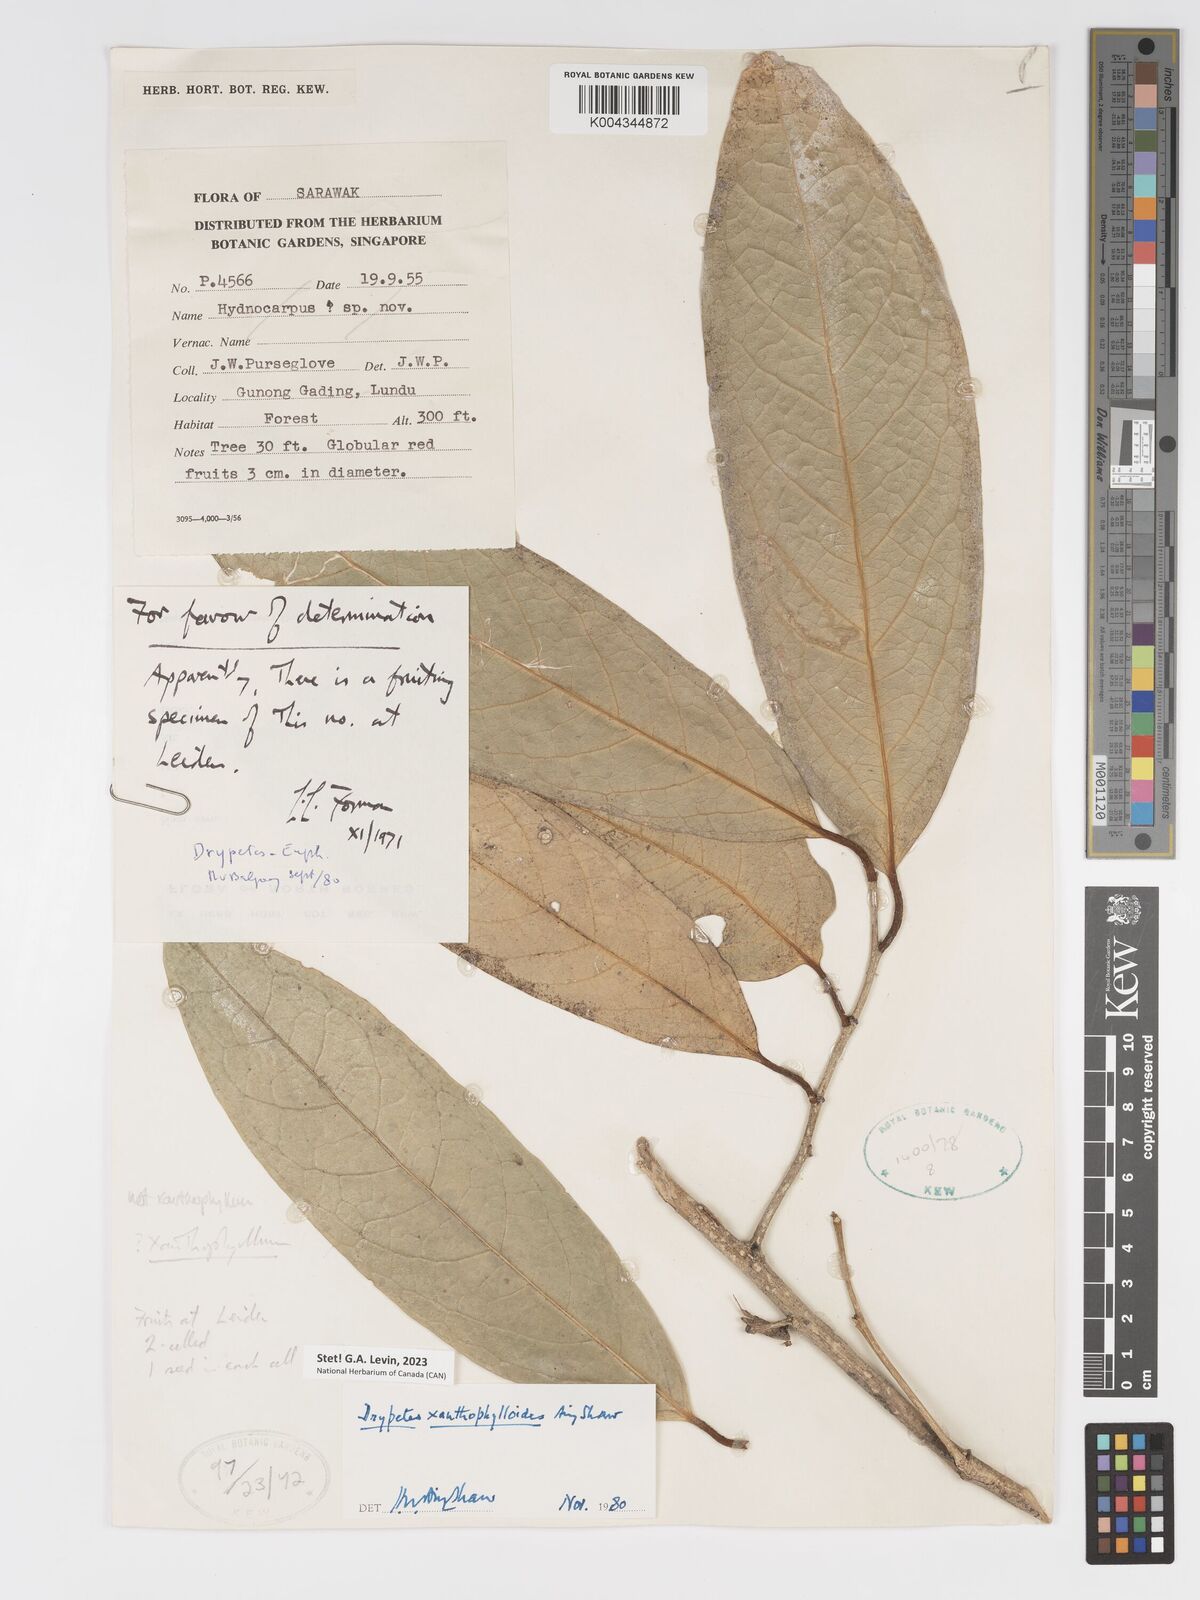 HERB. HORT. BOT. REG. KEW.
ROYAL BOTANIC GARDENS KEW
K004344872
FLORA OF SARAWAK
DISTRIBUTED FROM THE HERBARIUM
BOTANIC GARDENS, SINGAPORE
No. P.4566 Date 19.9.55
Name Hydnocarpus ? sp. nov.
Vernac. Name
Coll. J.W.Purseglove Det. J.W.P.
Locality Gunong Gading, Lundu
Habitat Forest Alt. 300 ft.
Notes Tree 30 ft. Globular red
fruits 3 cm. in diameter.
3095—4,000—3/56
For favour of determination
Apparently, There is a fruiting
specimen of This no. at
Leiden.
L.L. Forman
XI/1971
Drypetes - Euph.
Sept/80
not xanthophyllum
? Xanthophyllum
Fruits at Leiden
2-celled
1 seed in each cell
Stet! G.A. Levin, 2023
National Herbarium of Canada (CAN)
Drypetes xanthophylloides Airy Shaw
DET Airy Shaw Nov. 1980
ROYAL BOTANIC GARDENS
97/23/72
KEW
ROYAL BOTANIC GARDENS
1400/78
8
KEW
inches
Density
Don Williams
M001120
Kew
Royal Botanic Gardens
0 1 2 3 4 5 6 7 8 9 10
copyright reserved